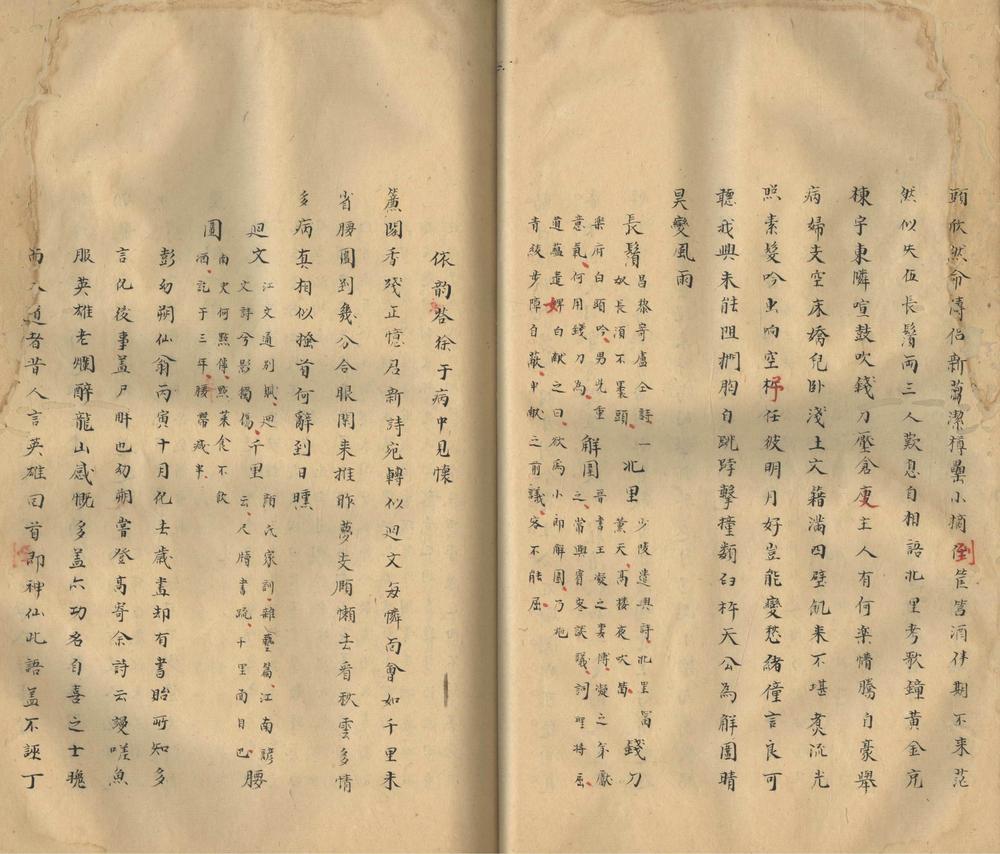 頭欣然命儔侶新蒭潔樽罍小摘倒筐筥酒伴期不来茫
然似失伍長鬚両三人歎息自相語北里考歌鐘黄金充
棟宇東隣喧鼓吹錢刀壓倉庾主人有何楽情騰自豪舉
病婦支空床嬌兒卧淺土文籍滿四壁飢来不堪煑流光
照素髮吟出响空杼任彼明月好豈能變愁緒僮言良可
聽我興未能阻捫胸自跳踔擊撞類臼杵天公為觧圍晴
昊變風雨
長鬚
昌黎寄盧仝詩一
奴長湏不裹頭
北里
少陵遣興詩北里冨
薰天髙樓夜吹笛
錢刀
楽府白頭吟男兒重
意氣何用錢刀為
解圍
晋書王凝之妻
之常與賔客談議詞理将屈
道藴遣婢白献之曰欲爲小郎解圍乃
青綾步障自蔽申献之前議客不能屈
依韵答徐于病中見懷
簾閣香殘正憶君新詩宛轉似迴文毎憐面會如千里未
省腰圍到幾分合眼閑来推昨夢支頤懶去看秋雲多情
多病真相似搔首何辭到日曛
迴文
江文通别賦迴
文詩兮影獨傷
千里
顔氏家訓雜藝篇江南諺
云尺牘書疏千里面目也
腰
圍
南史何㸃傳㸃菜食不飲
酒訖于三年腰帶减半
彭幻朔仙翁丙寅十月化去歲晝却有書貽所知多
言化後事蓋尸觧也幻朔嘗登髙寄余詩云謾嗟魚
服英雄老爛醉龍山感慨多盖亦功名自喜之士晩
而入道者昔人言英雄回首即神仙此語盖不誣丁